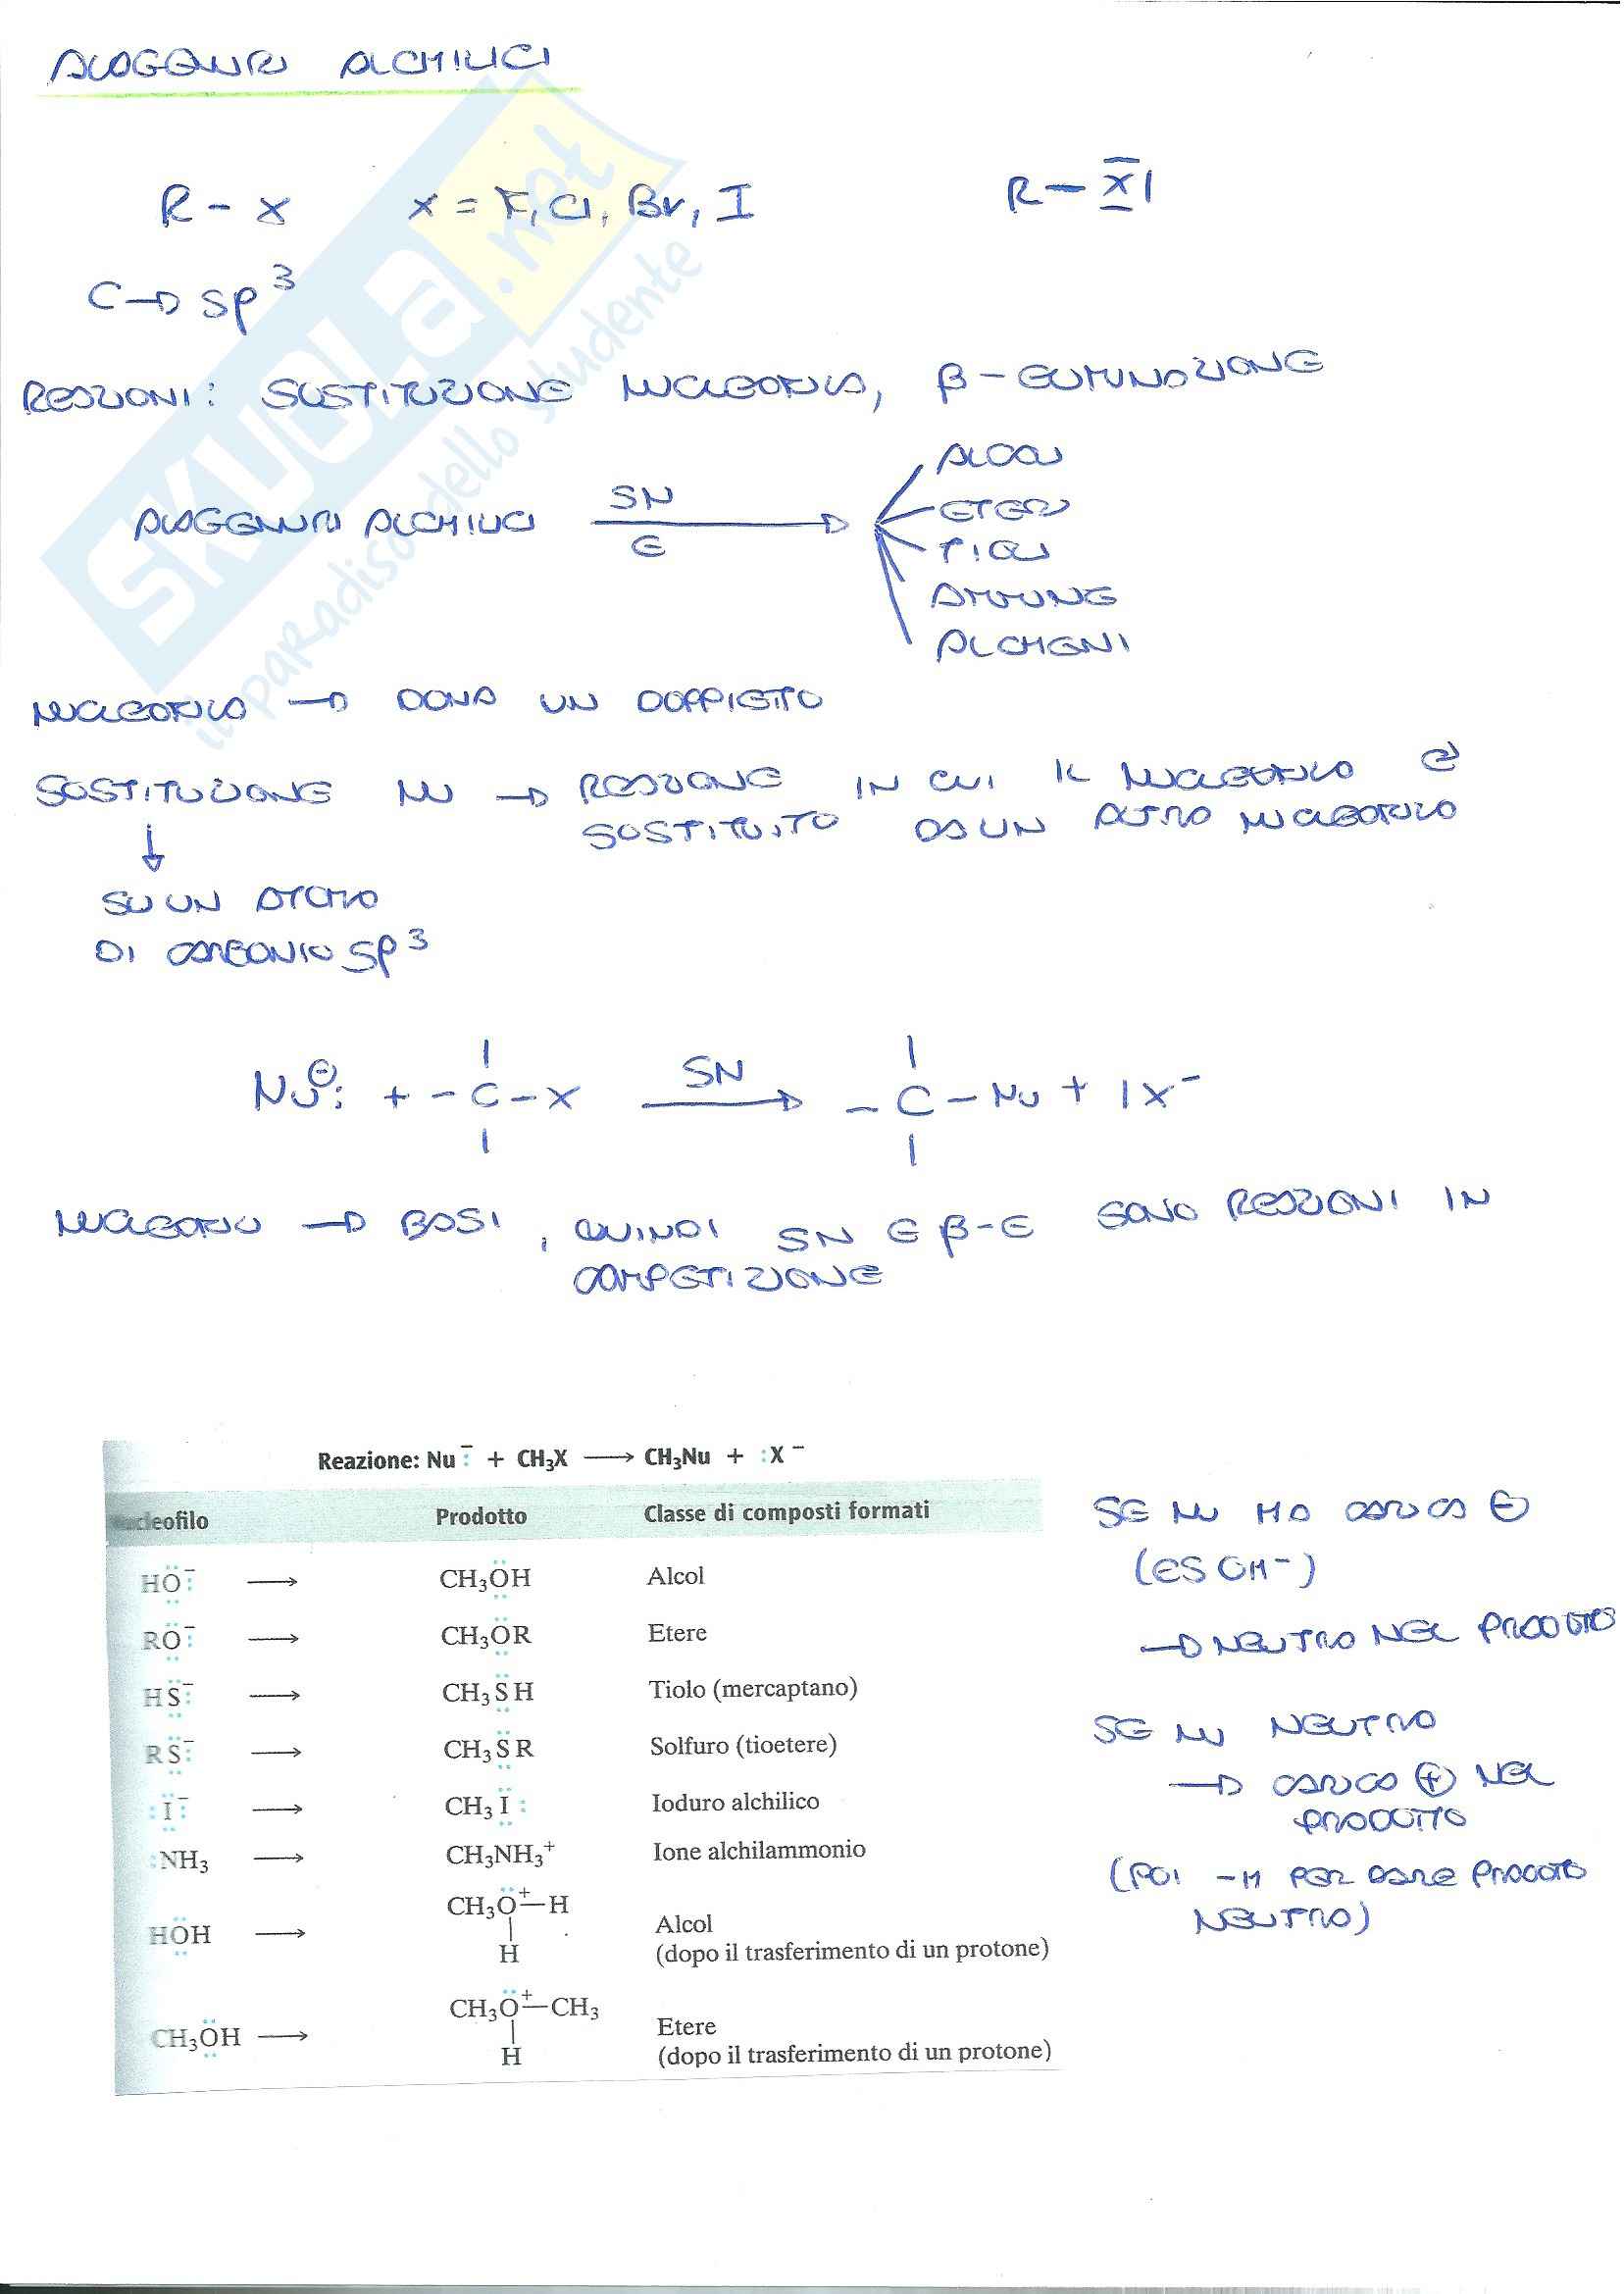 ALOGENURI ALCHILICI
R - X    X = F, Cl, Br, I    R - X̅|
C → sp³
REAZIONI: SOSTITUZIONE NUCLEOFILA, β-ELIMINAZIONE
ALOGENURI ALCHILICI SN E → ALCOLI
ETERI
TIOLI
AMMINE
ALCHENI
NUCLEOFILO → DONA UN DOPPIETTO
SOSTITUZIONE NU → REAZIONE IN CUI IL NUCLEOFILO È
SOSTITUITO DA UN ALTRO NUCLEOFILO
↓
SU UN ATOMO
DI CARBONIO SP³
Nu⊖: + -C-X SN → -C-Nu + |X⁻
NUCLEOFILI → BASI, QUINDI SN E β-E SONO REAZIONI IN
COMPETIZIONE
Reazione: Nu:⁻ + CH₃X → CH₃Nu + :X⁻
Nucleofilo Prodotto Classe di composti formati
HO:⁻ → CH₃OH Alcol
RO:⁻ → CH₃OR Etere
HS:⁻ → CH₃SH Tiolo (mercaptano)
RS:⁻ → CH₃SR Solfuro (tioetere)
:I:⁻ → CH₃I: Ioduro alchilico
:NH₃ → CH₃NH₃⁺ Ione alchilammonio
HOH → CH₃O⁺—H Alcol
H (dopo il trasferimento di un protone)
CH₃OH → CH₃O⁺—CH₃ Etere
H (dopo il trasferimento di un protone)
SE NU HA CARICA ⊖
(ES OH⁻)
→ NEUTRO NEL PRODOTTO
SE NU NEUTRO
→ CARICA ⊕ NEL
PRODOTTO
(POI -H PER DARE PRODOTTO
NEUTRO)
SKUOLA.net
il paradiso dello studente